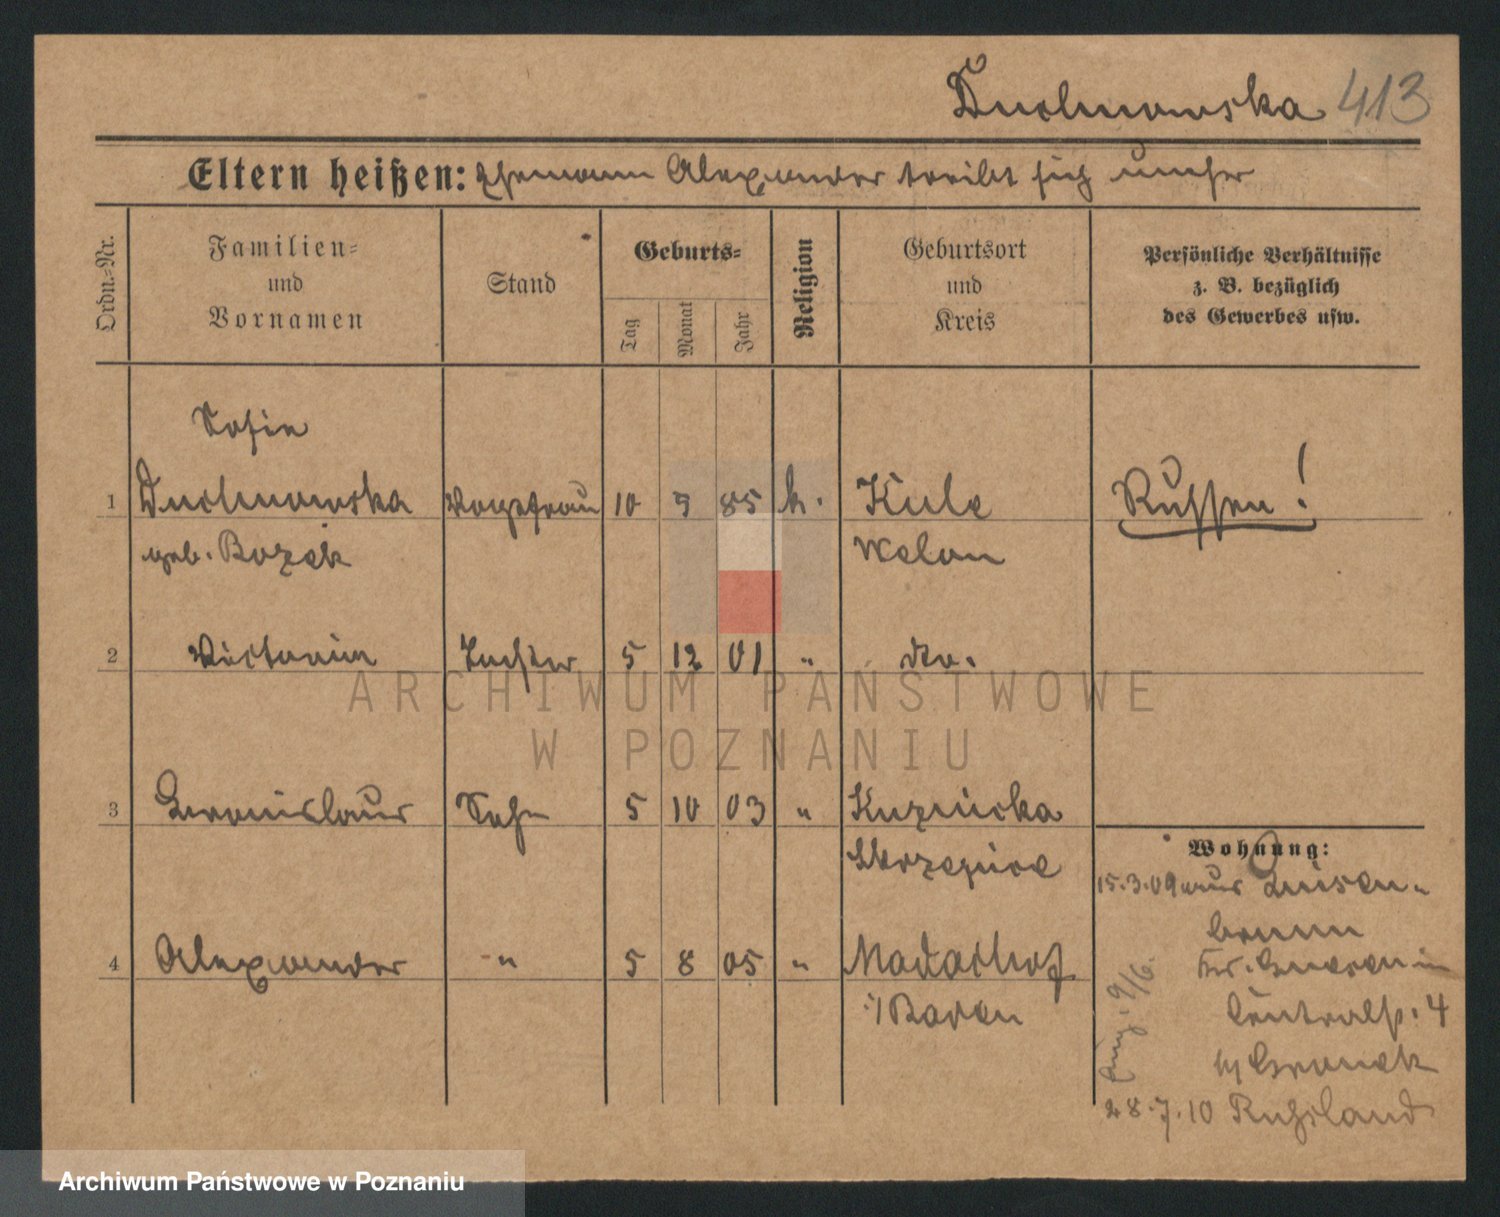 Duchnowska 413
Eltern heißen: Ehemann Alexander treibt sich umher
Ordn.-Nr.
Familien-
und
Vornamen
Stand
Geburts-
Tag
Monat
Jahr
Religion
Geburtsort
und
Kreis
Persönliche Verhältnisse
z. B. bezüglich
des Gewerbes usw.
Sofie
1 Duchnowska 10 9 85 k. Kule Russen!
geb. Bozek Welun
2 Victoria Tochter 5 12 01 " do.
3 Bronislaus Sohn 5 10 03 " Kuznicka
Skrzeptice
4 Alexander " 5 8 05 " Madachhof
i/Baden
Wohnung:
15.3.09 aus Luisen-
brunn
Centralstr. 4
28.7.10 Russland
ARCHIWUM PAŃSTWOWE
W POZNANIU
Archiwum Państwowe w Poznaniu